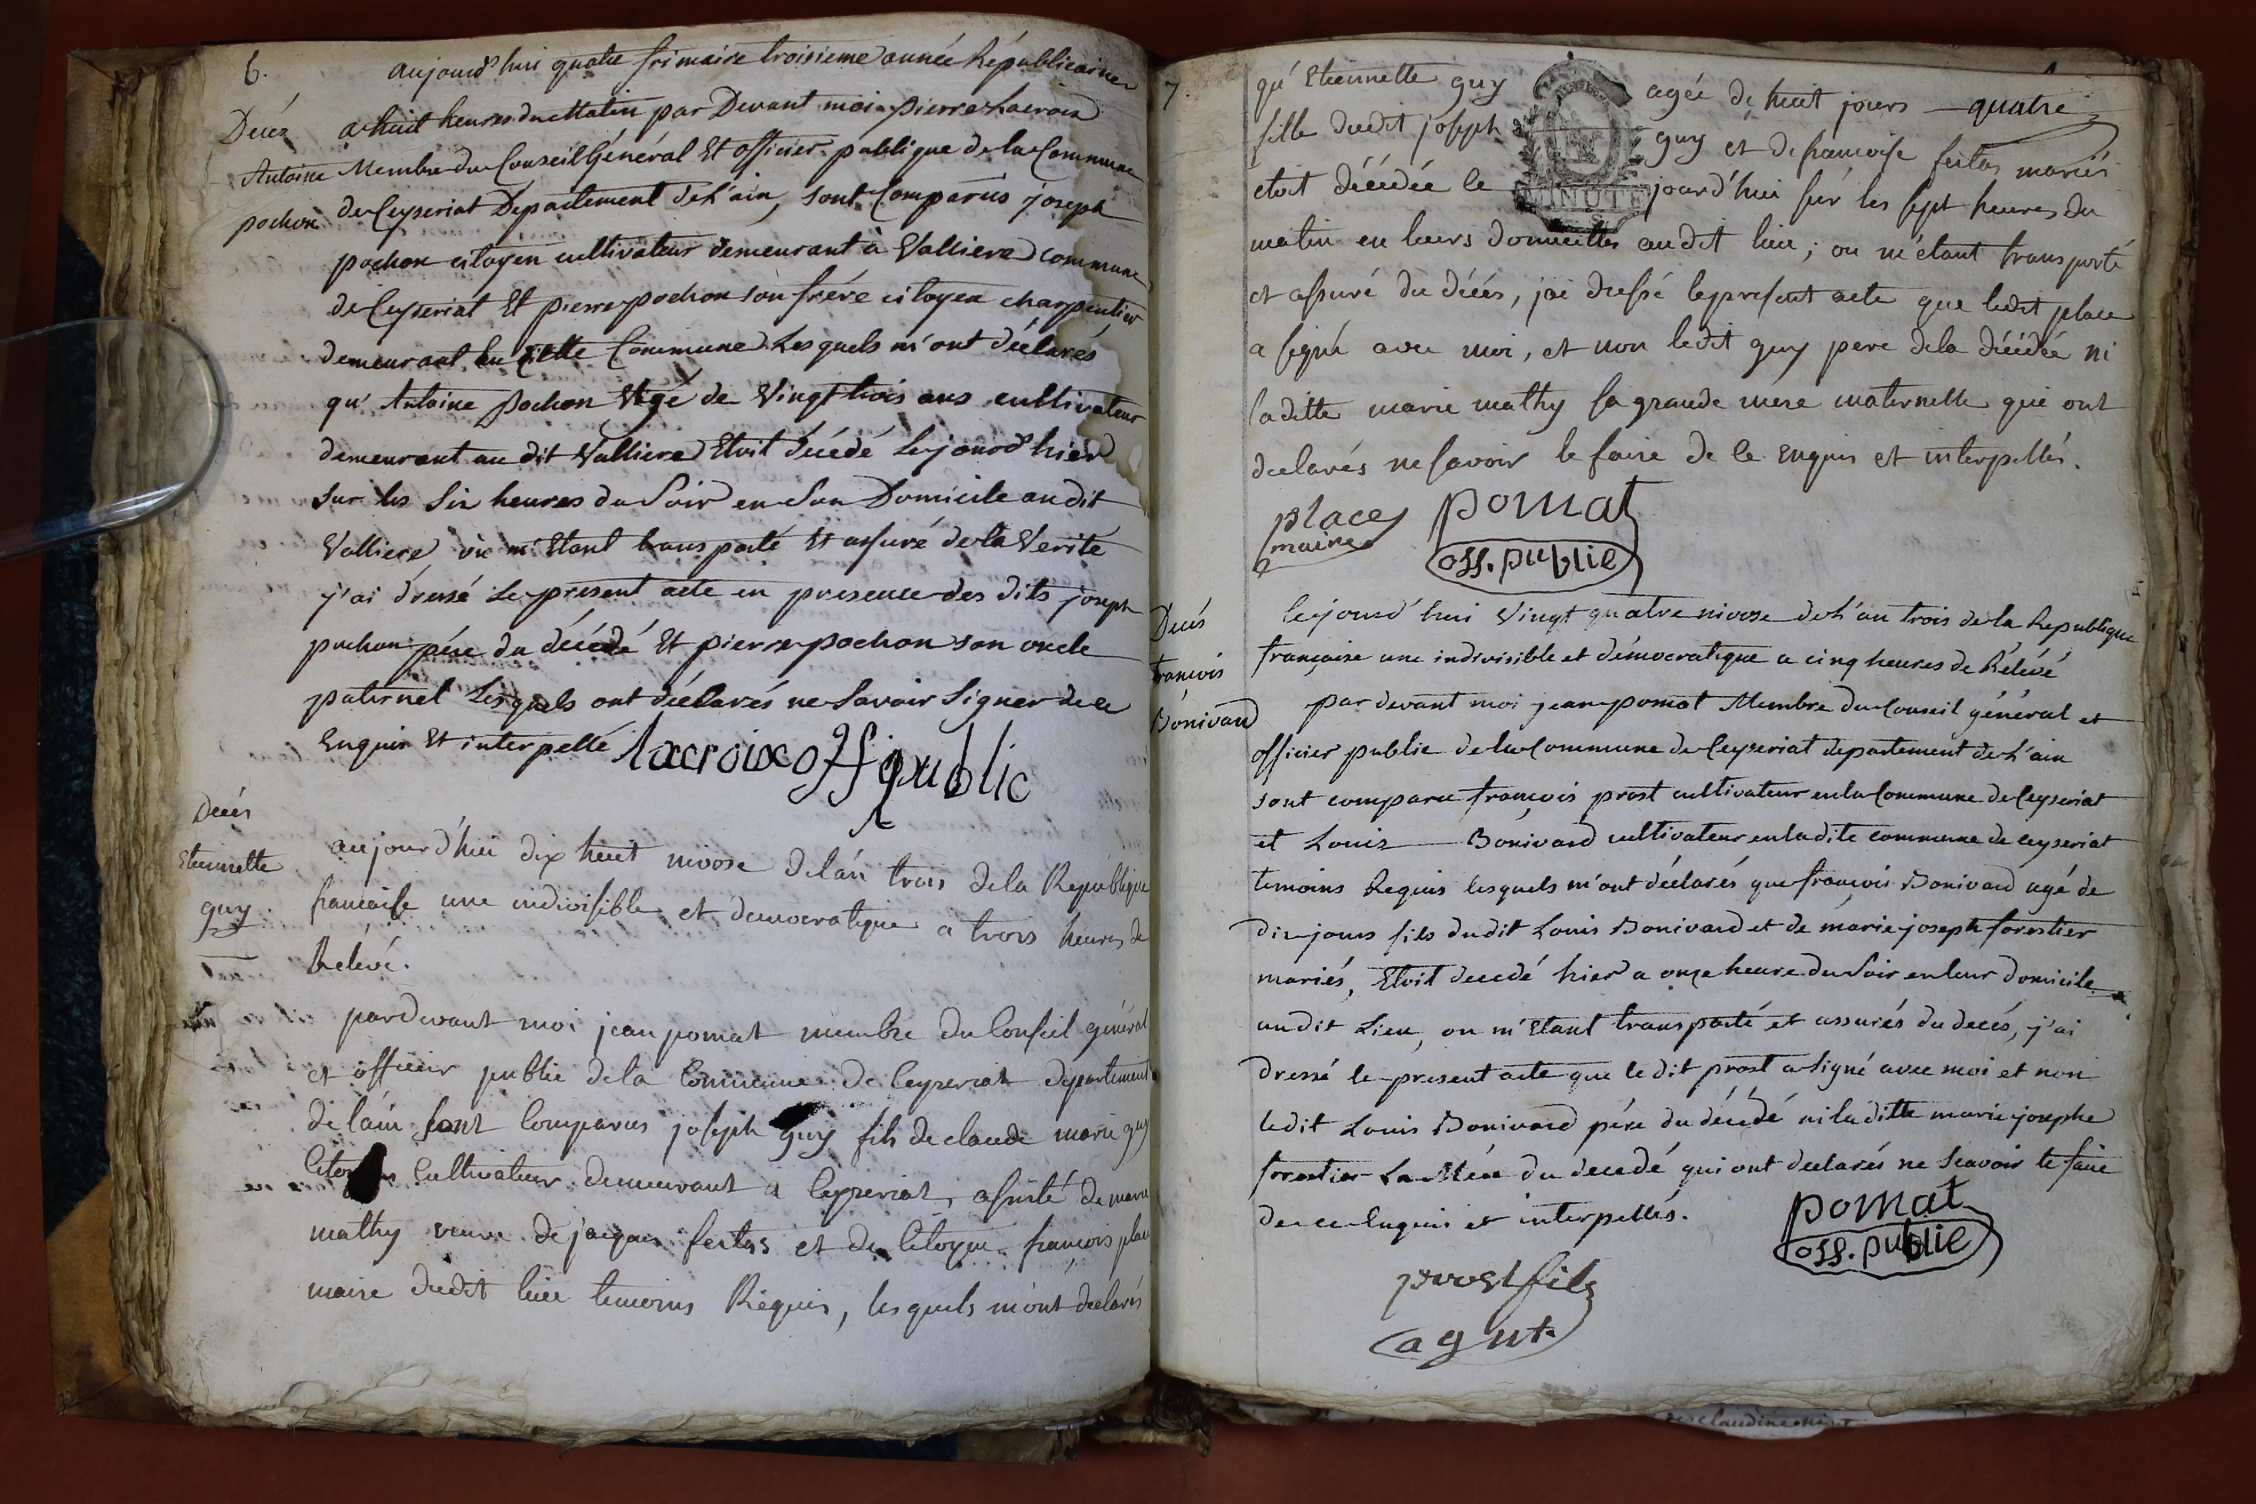 6.
aujourd'hui quatre frimaire troisieme année Républicaine
Décés
a huit heures du Matin par Devant moi pierre Lacroix
Antoine
Membre du Conseil Général Et officier publique de la Commune
pochon
de Ceyseriat Departement De L'ain, sont Comparus joseph
pochon citoyen cultivateur demeurant à Valliere commune
de Ceyseriat Et pierre pochon son frére citoyen charpentier
demeurant en Cette Commune Lesquels m'ont déclarés
qu'Antoine pochon Agé de Vingt trois ans cultivateur
demeurant au dit Valliere Etoit décédé Le jourd'hier
sur les Six heures du Soir en Son Domicile au dit
Valliere où m'Etant transporté Et assuré de la Verité
j'ai dressé Le present acte en presence des dits joseph
pochon pére du décédé Et pierre pochon son oncle
paternel Lesquels ont déclarés ne Savoir Signer de ce
Enquis Et interpellé
lacroix off public
Décés
Etiennette
guy
aujourd'hui dix huit nivose de l'an trois de la République
francaise une indivisible et democratique a trois heures de
Relevé.
pardevant moi jean pomat membre du Conseil général
et officier public de la Commune de Ceyzeriat departement
de l'ain sont Comparus joseph guy fils de claude marie guy
Cultivateur demeurant a Ceyzeriat, assisté de marie
mathy veuve de jacques et du Citoyen françois place
maire dudit lieu temoins Requis, lesquels m'ont déclarés
7.
qu'Etiennette guy agée de huit jours quatre
fille dudit joseph guy et de francoise mariés
MINUTE
etoit décédée le jourd'hui sur les sept heures du
matin en leurs domicilles audit lieu; ou m'étant transporté
et assuré du décés, j'ai dressé le présent acte que ledit place
a signé avec moi, et non ledit guy pere de la décédée ni
laditte marie mathy sa grande mere maternelle qui ont
declarés ne savoir le faire de ce enquis et interpellés.
place pomat
maire off. public
Décés
francois
Bonivard
Le jourd'hui Vingt quatre nivose de L'an trois de la Republique
française une indivisible et démocratique a cinq heures de Relévé
par devant moi jean pomat Membre du Conseil général et
officier public de la Commune de Ceyseriat departement de L'ain
sont comparu françois prost cultivateur en la Commune de Ceyseriat
et Louis Bonivard cultivateur en la dite commune de ceyseriat
temoins Requis lesquels m'ont déclarés que françois Bonivard agé de
dix jours fils dudit Louis Bonivard et de marie joseph forestier
mariés, Etoit decedé hier a onze heure du Soir en leur domicile
au dit Lieu, ou m'Etant transporté et assurés du decés, j'ai
dressé le present acte que le dit prost a signé avec moi et non
ledit Louis Bonivard pére du décédé ni la ditte marie josephe
forestier La Mére du decedé qui ont declarés ne Scavoir le faire
de ce Enquis et interpellés.
pomat
off. public
prost fils
agnt.